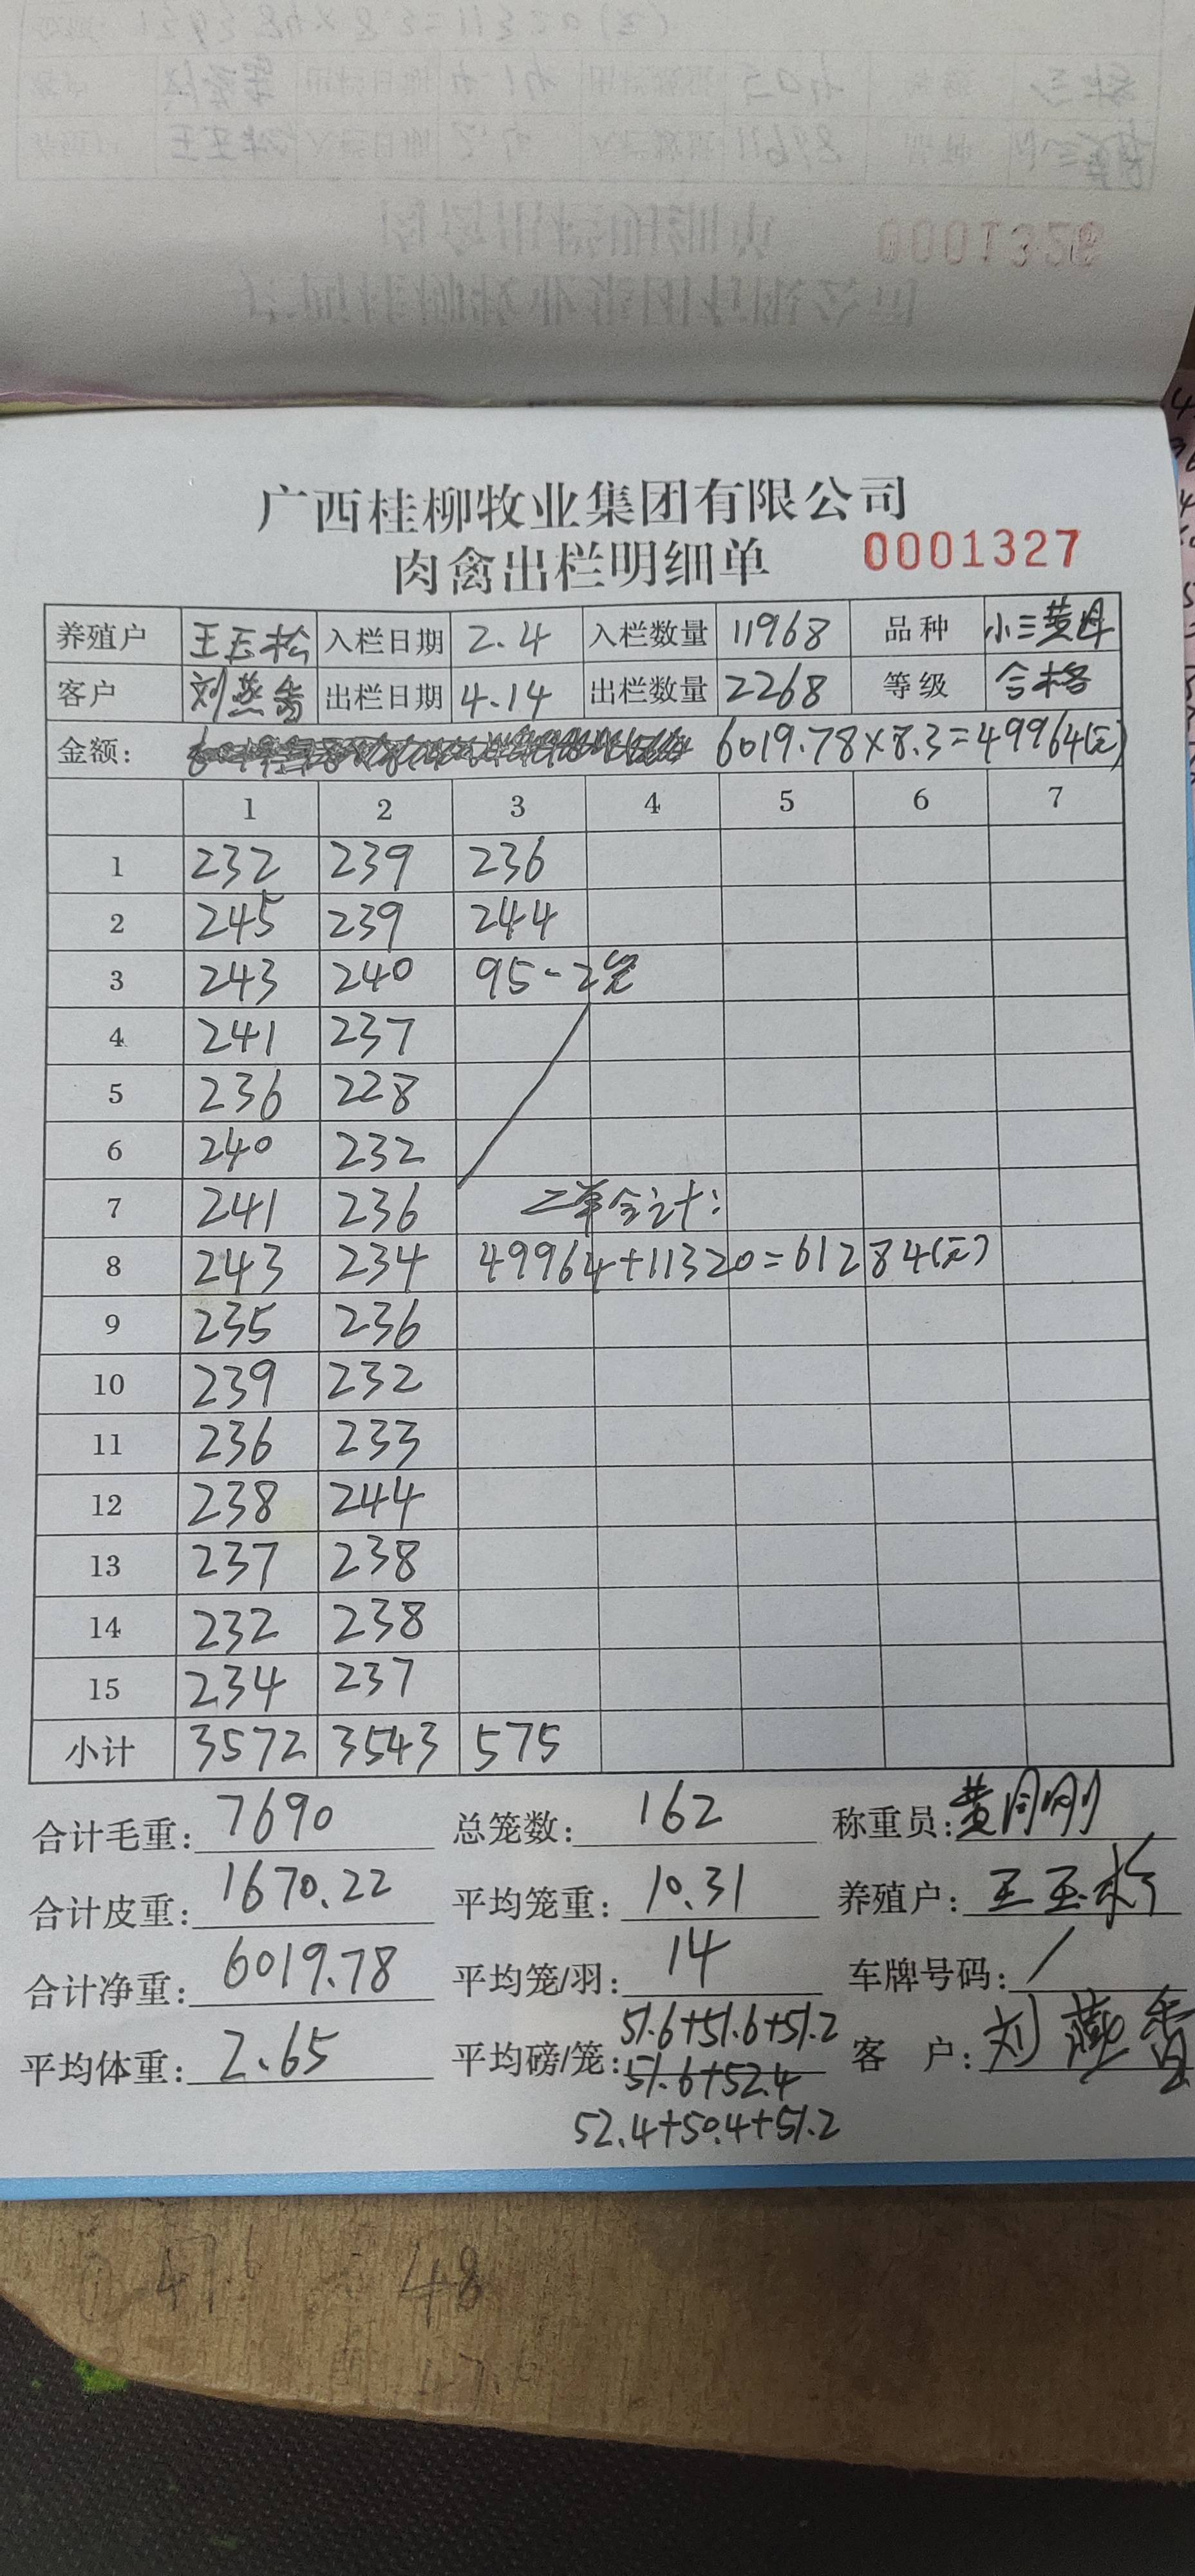 广西桂柳牧业集团有限公司
肉禽出栏明细单 0001327
养殖户 王玉松 入栏日期 2.4 入栏数量 11968 品种 小三黄母
客户 刘燕香 出栏日期 4.14 出栏数量 2268 等级 合格
金额: 6019.78×8.3=49964(元)
1 2 3 4 5 6 7
1 232 239 236
2 245 239 244
3 243 240 95-2笼
4 241 237
5 236 228
6 240 232
7 241 236 二单合计:
8 243 234 49964+11320=61284(元)
9 235 236
10 239 232
11 236 233
12 238 244
13 237 238
14 232 238
15 234 237
小计 3572 3543 575
合计毛重: 7690 总笼数: 162 称重员: 黄月刚
合计皮重: 1670.22 平均笼重: 10.31 养殖户: 王玉松
合计净重: 6019.78 平均笼/羽: 14 车牌号码: /
51.6+51.6+51.2
平均体重: 2.65 平均磅/笼: 51.6+52.4 客 户: 刘燕香
52.4+50.4+51.2
48